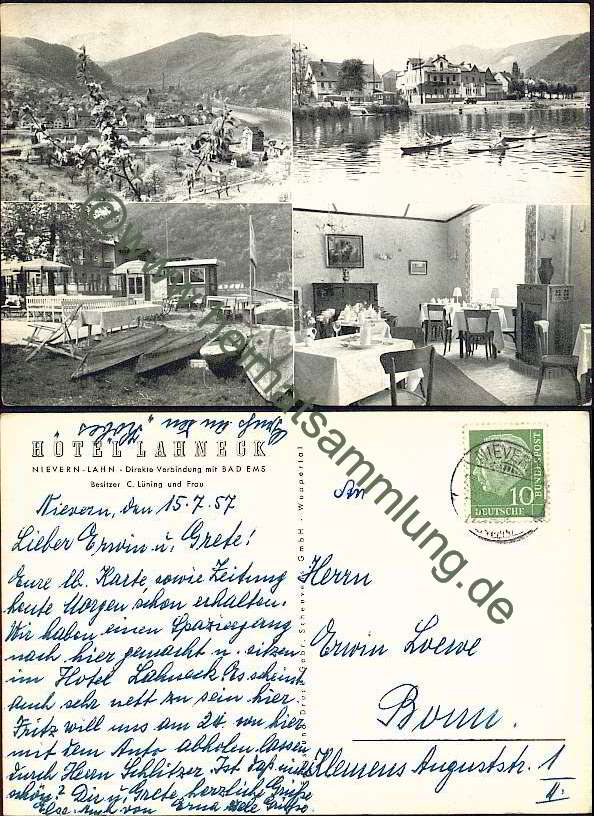 © www.heimatsammlung.de
Gruß an den
HOTEL LAHNECK
NIEVERN-LAHN - Direkte Verbindung mit BAD EMS
Besitzer C. Lüning und Frau
Nievern, den 15.7.57
Lieber Erwin u. Grete!
Eure lb. Karte, sowie Zeitung
heute Morgen schon erhalten.
Wir haben einen Spaziergang
nach hier gemacht u. sitzen
im Hotel Lahneck. Es scheint
auch sehr nett zu sein hier.
Fritz will uns am 20. von hier
mit dem Auto abholen lassen
durch Herrn Schlitzer. Ist das nicht
schön? Dir u. Grete herzliche Grüße
Else. Auch von Erna viele Grüße
Schenver GmbH - Wuppertal
NIEVERN
10
BUNDESPOST
DEUTSCHE
An
Herrn
Erwin Loewe
Bonn.
Klemens Auguststr. 1
II.